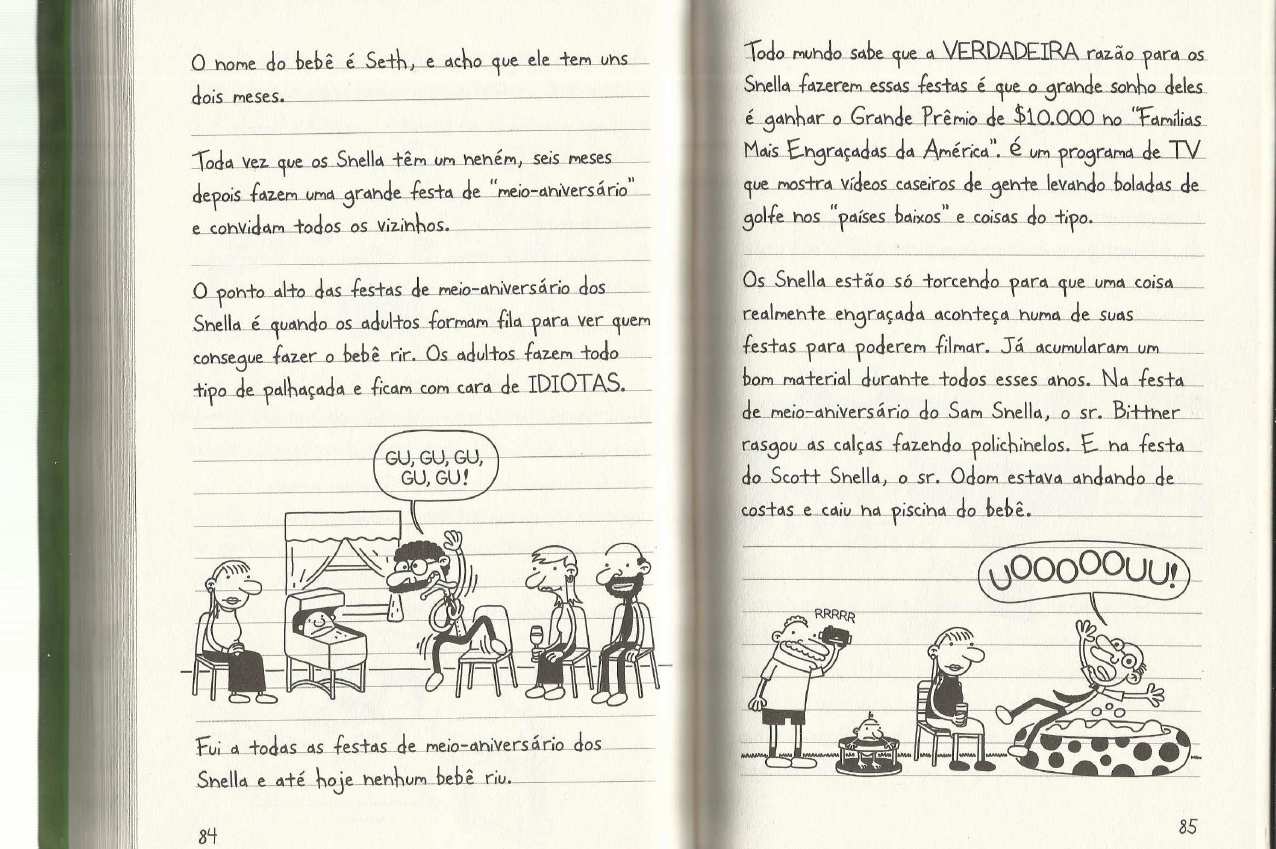 O nome do bebê é Seth, e acho que ele tem uns
dois meses.
Toda vez que os Snella têm um neném, seis meses
depois fazem uma grande festa de "meio-aniversário"
e convidam todos os vizinhos.
O ponto alto das festas de meio-aniversário dos
Snella é quando os adultos formam fila para ver quem
consegue fazer o bebê rir. Os adultos fazem todo
tipo de palhaçada e ficam com cara de IDIOTAS.
GU, GU, GU,
GU, GU!
Fui a todas as festas de meio-aniversário dos
Snella e até hoje nenhum bebê riu.
84
Todo mundo sabe que a VERDADEIRA razão para os
Snella fazerem essas festas é que o grande sonho deles
é ganhar o Grande Prêmio de $10.000 no "Famílias
Mais Engraçadas da América". É um programa de TV
que mostra vídeos caseiros de gente levando boladas de
golfe nos "países baixos" e coisas do tipo.
Os Snella estão só torcendo para que uma coisa
realmente engraçada aconteça numa de suas
festas para poderem filmar. Já acumularam um
bom material durante todos esses anos. Na festa
de meio-aniversário do Sam Snella, o sr. Bittner
rasgou as calças fazendo polichinelos. E na festa
do Scott Snella, o sr. Odom estava andando de
costas e caiu na piscina do bebê.
RRRRR
UOOOOOUU!
85